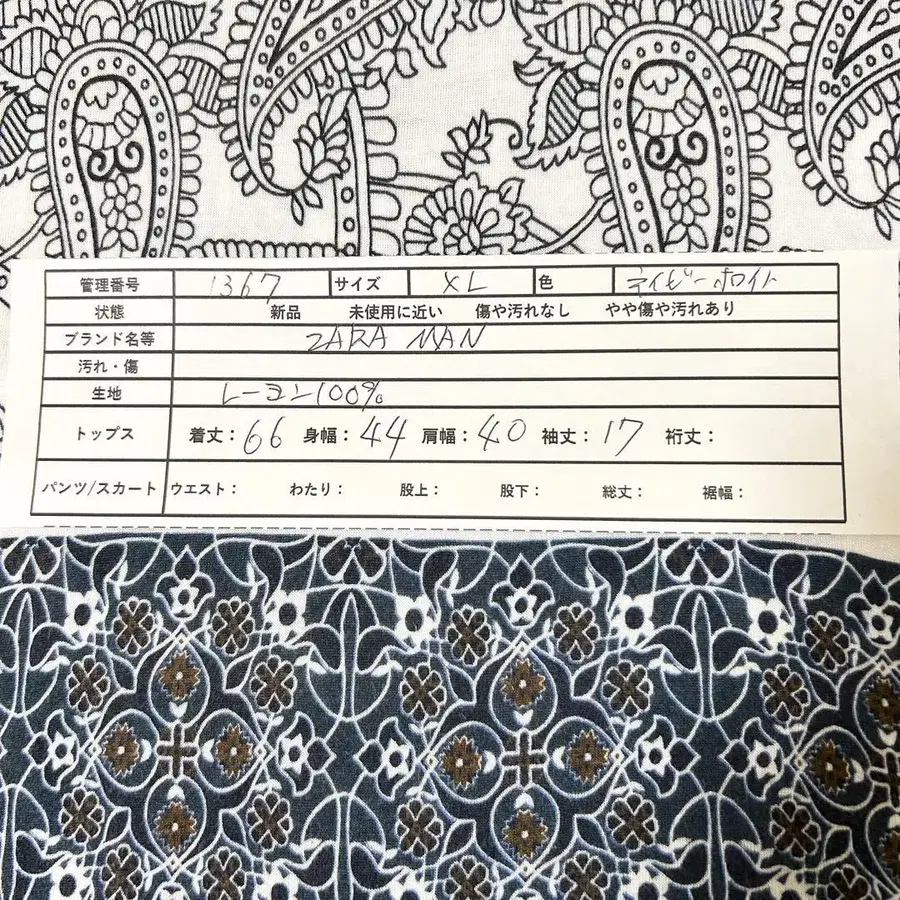 管理番号 1367 サイズ XL 色 ネイビー ホワイト
状態 新品 未使用に近い 傷や汚れなし やや傷や汚れあり
ブランド名等 ZARA MAN
汚れ・傷
生地 レーヨン100%
トップス 着丈：66 身幅：44 肩幅：40 袖丈：17 裄丈：
パンツ/スカート ウエスト： わたり： 股上： 股下： 総丈： 裾幅：